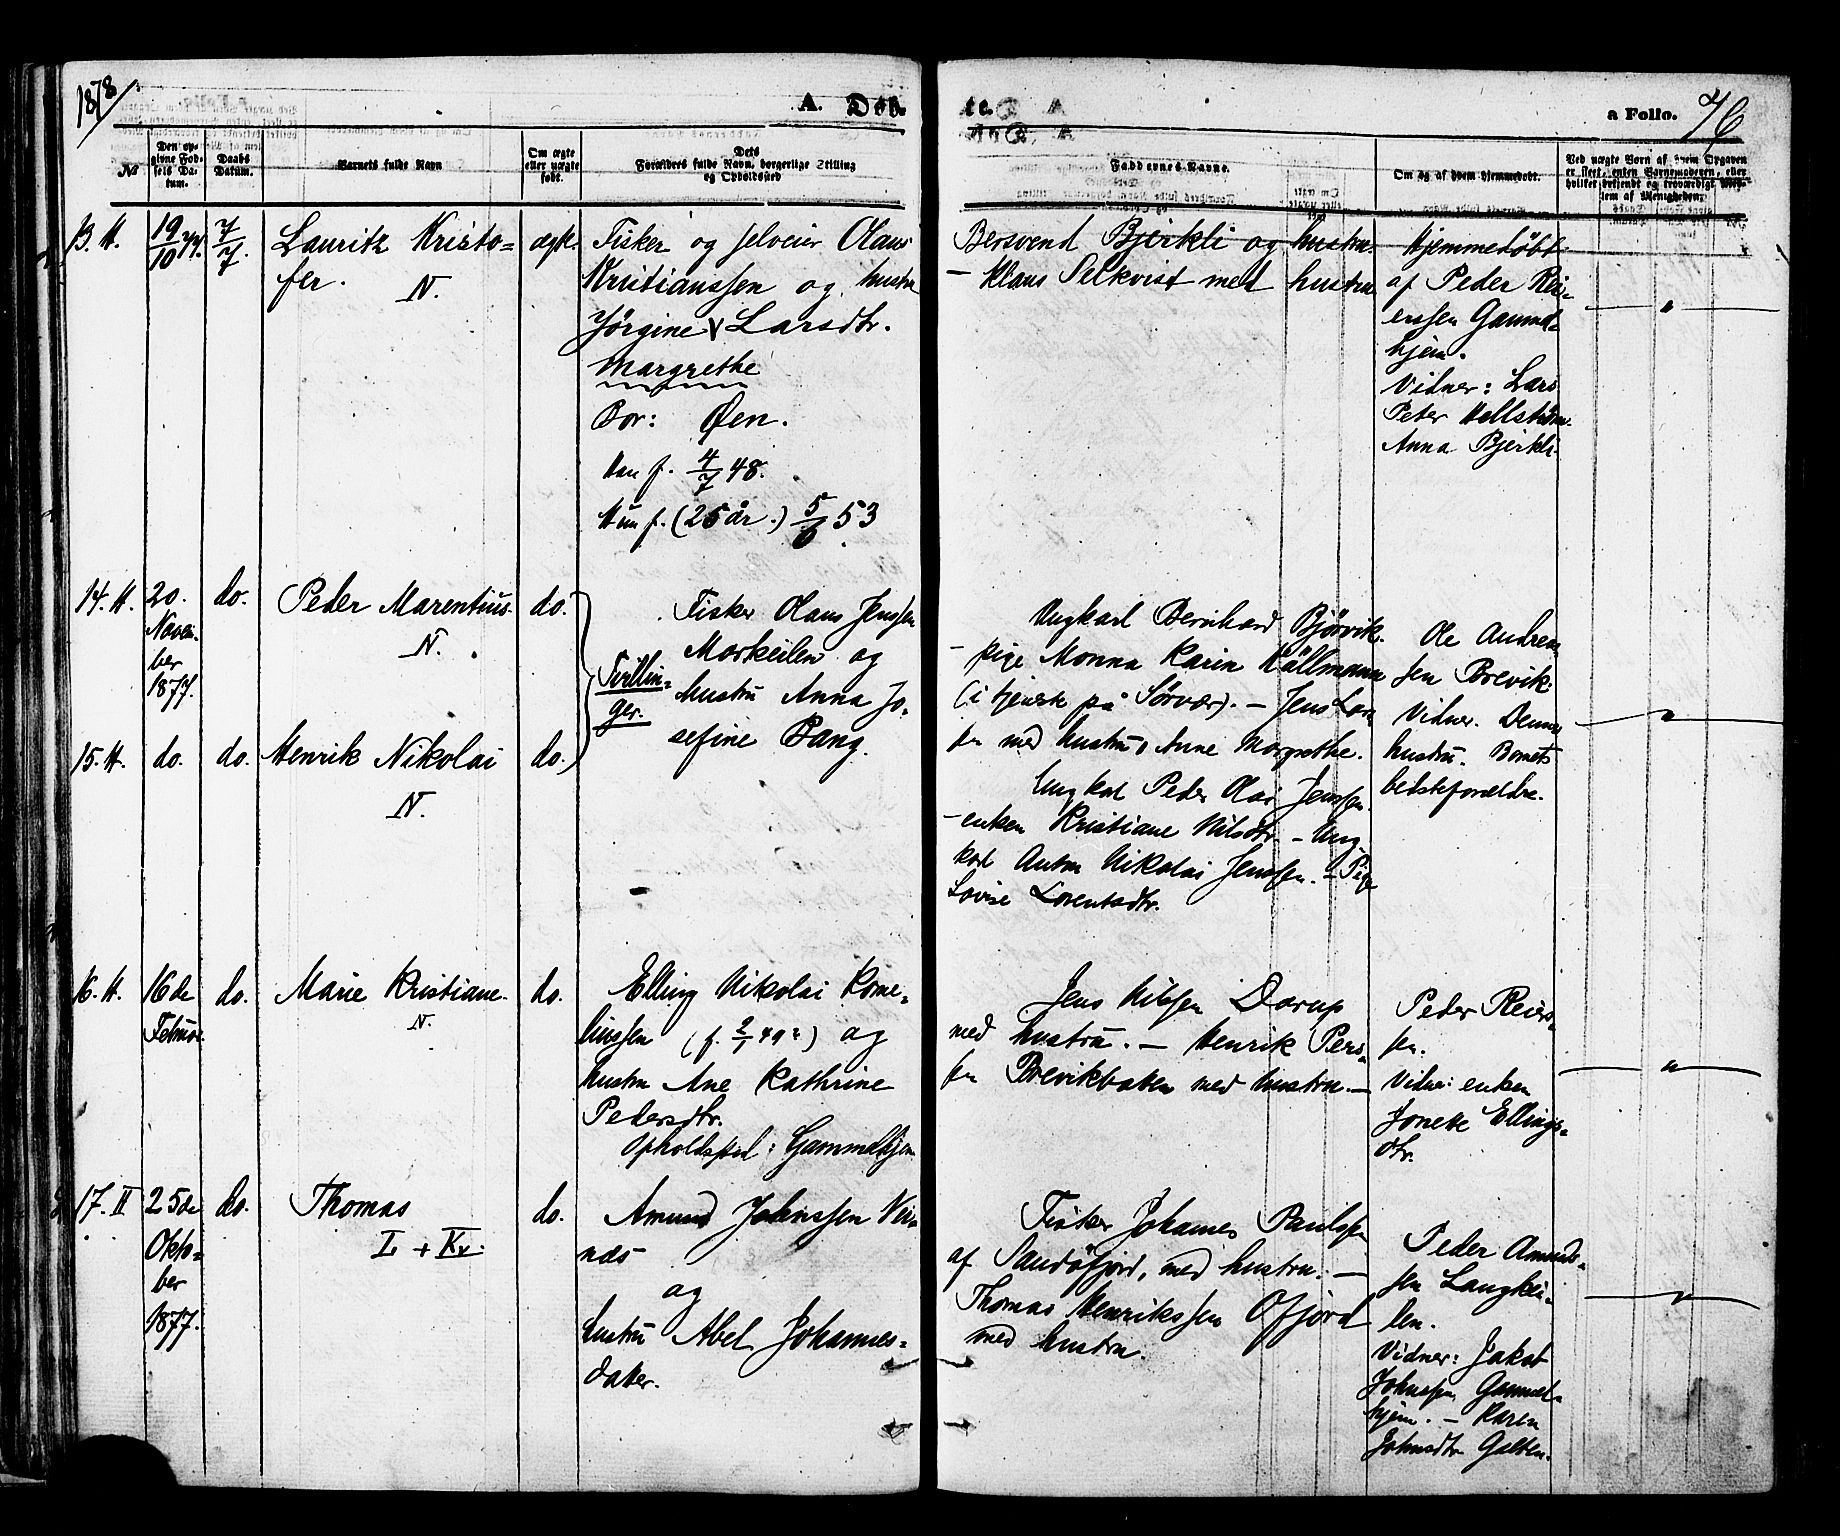 1878
A. Døb-
te.
a Folio. 76
No
Den op-
givne Fød-
sels Da-
tum.
Daabs
Datum.
Barnets fulde Navn
Om ægte
eller uægte
født.
Dets
Forældres fulde Navn, borgerlige Stilling
og Opholdssted
Faddernes Navne.
Om og af hvem hjemmedøbt.
Ved uægte Børn af hvem Opgaven
er skeet, enten Barnemoderen, eller
hvilket bekjendt og troværdigt Med-
lem af Menigheden.
13. H.
19/10 77.
7/7.
Lauritz Kristo=
fer.
N.
ægte.
Fisker og selveier Olaus
Kristianssen og hustru
Jörgine Larsdtr.
Margrethe
Bor: Øen.
Han f. 4/7 48.
Hun f. (25 år.) 5/6 53
Bersvend Bjerkli og hustru.
- Klaus Selkvist med hustru
Hjemmedöbt
af Peder Rei=
erssen Gammel=
hjem.
Vidner: Lars
Peter Hellström.
Anna Bjerkli.
14. H.
20.
Novem-
ber
1877.
do.
Peder Marentius.
N.
do.
Tvillin=
ger.
Fisker Olaus Jenssen
Markeilen og
hustru Anna Jo=
sefine Bang.
Ungkarl Bernhard Bjørvik.
- pige Monna Karin Källmann
(i tjeneste på Sörvær). - Jens Lar=
sen med hustru, Anne Margrethe.
Ole Andreas
sen Brevik.
Vidner. Dennes
hustru. Barnets
bedsteforældre.
15. H.
do.
do.
Henrik Nikolai
N.
do.
Ungkarl Peder Olai Jenssen.
- enken Kristiane Nilsdtr. - Ung-
karl Anton Nikolai Jenssen. - Pige
Lovise Lorentsdtr.
16. H.
16de
Februar.
do.
Marie Kristiane.
N.
do.
Elling Nikolai Korne=
liussen (f. 2/1 49?) og
hustru Ane Kathrine
Pedersdtr.
Opholdssted: Gammelhjem
Jens Nilssen Dorup
med hustru. - Henrik Pers=
sen Brevikbaten med hustru. -
Peder Reiers=
sen.
Vidner: enken
Jonette Ellings=
dtr.
17. II
25de
Okto=
ber
1877.
do.
Thomas
L + Kv.
do.
Amund Johnssen Vei=
næs
og
hustru Abel Johannes=
datter.
Fisker Johannes Paulssen
af Sandöfjord, med hustru. -
Thomas Henrikssen Ofjord
med hustru.
Peder Amunds=
sen Langkei=
len.
Vidner: Jakob
Johnssen Gammel=
hjem. - Karen
Johnsdtr Galten.